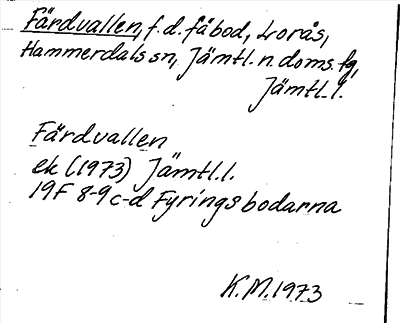 Färdvallen, f.d. fäbod, Lorås,
Hammerdals sn, Jämtl. n. doms. fg,
Jämtl. l.
Färdvallen
ek (1973) Jämtl. l.
19F 8-9 c-d Fyringsbodarna
K.M. 1973